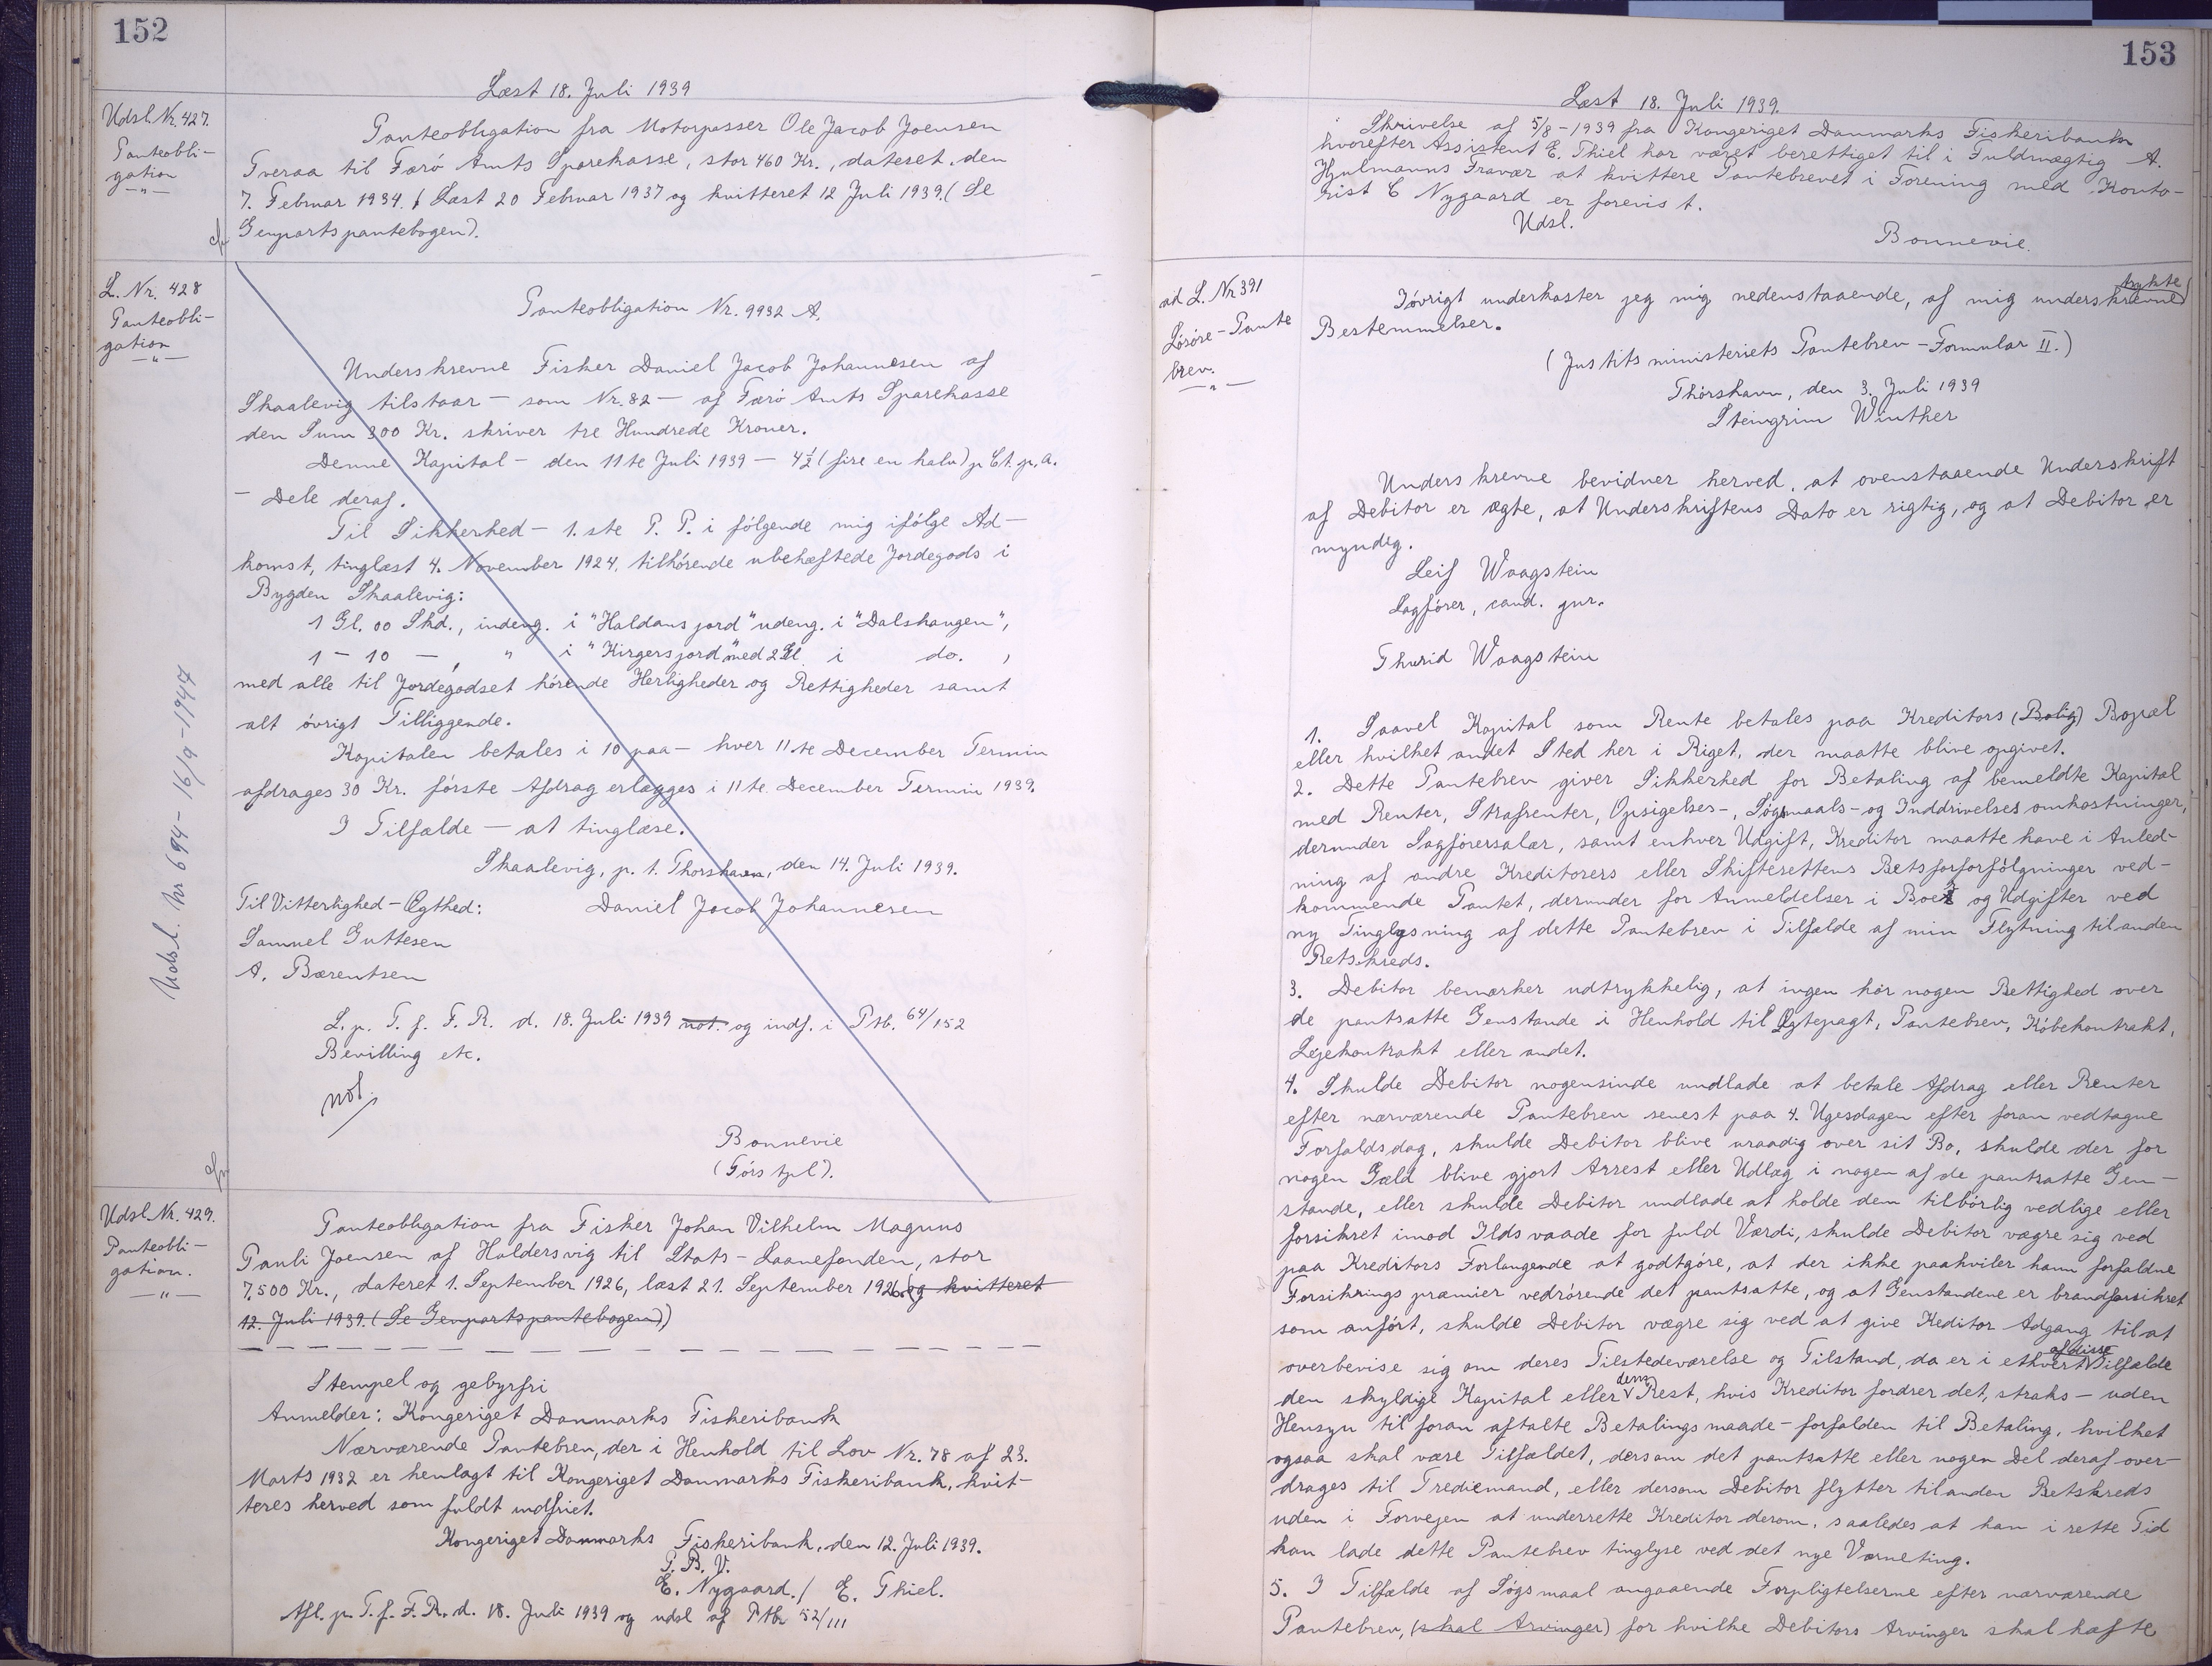 152
Læst 18. Juli 1939
Udsl. Nr. 427.
Panteobli-
gation
—"—
Panteobligation fra Motorpasser Ole Jacob Joensen
Tveraa til Færö Amts Sparekasse, stor 460 Kr., dateret den
7. Februar 1934. ( Læst 20 Februar 1937 og kvitteret 12 Juli 1939. ( Se
Genpartspantebogen).
L. Nr. 428
Panteobli-
gation
—"—
Panteobligation Nr. 9932 A.
Underskrevne Fisker Daniel Jacob Johannesen af
Skaalevig tilstaar — som Nr. 82 — af Færö Amts Sparekasse
den Sum 300 Kr. skriver tre Hundrede Kroner.
Denne Kapital — den 11te Juli 1939 — 4½ (fire en halv) p Ct. p. a.
— Dele deraf.
Til Sikkerhed — 1.ste P. P. i fölgende mig ifölge Ad-
komst, tinglæst 4. November 1924, tilhörende ubehæftede Jordegods i
Bygden Skaalevig:
1 Gl. 00 Skd., indeng. i "Haldansjord" udeng. i "Dalshaugen",
1 — 10 — , " i "Kirgersjord" med 2 Gl i do. ,
med alle til Jordegodset hörende Herligheder og Rettigheder samt
alt övrigt Tilliggende.
Kapitalen betales i 10 paa — hver 11te December Termin
afdrages 30 Kr. förste Afdrag erlægges i 11te December Termin 1939.
I Tilfælde — at tinglæse.
Skaalevig, p. t. Thorshavn, den 14. Juli 1939.
Til Vitterlighed — Ægthed: Daniel Jacob Johannesen
Samuel Guttesen
A. Bærentsen
L. p. T. f. F. R. d. 18. Juli 1939 not. og indf. i Ptb. 64/152
Bevilling etc.
not.
Bonnevie
(Förs tpl).
Udsl. Nr 694 - 16/9 - 1947
Udsl. Nr. 429.
Panteobli-
gation.
—"—
Panteobligation fra Fisker Johan Vilhelm Magnus
Pauli Joensen af Haldersvig til Stats-Laanefonden, stor
7.500 Kr., dateret 1. September 1926, læst 21. September 1926. og kvitteret
12. Juli 1939. (Se Genpartspantebogen))
Stempel og gebyrfri
Anmelder: Kongeriget Danmarks Fiskeribank
Nærværende Pantebrev, der i Henhold til Lov Nr. 78 af 23.
Marts 1932 er henlagt til Kongeriget Danmarks Fiskeribank, kvit-
teres herved som fuldt indfriet.
Kongeriget Danmarks Fiskeribank, den 12. Juli 1939.
P. B. V.
E. Nygaard. / E. Thiel.
Afl. p. T. f. F. R. d. 18. Juli 1939 og udsl af Ptb. 52/111
153
Læst 18. Juli 1939.
Skrivelse af 5/8 - 1939 fra Kongeriget Danmarks Fiskeribank
hvorefter Assistent E. Thiel har været berettiget til i Fuldmægtig A.
Hjulmanns Fravær at kvittere Pantebrevet i Forening med Konto-
rist E Nygaard er forevist.
Udsl.
Bonnevie.
ad L. Nr 391
Lösöre-Pante
brev.
—"—
Iövrigt underkaster jeg mig nedenstaaende, af mig underskrevne trykte
Bestemmelser.
(Justitsministeriets Pantebrev-Formular II.)
Thorshavn, den 3. Juli 1939
Steingrim Winther
Underskrevne bevidner herved, at ovenstaaende Underskrift
af Debitor er ægte, at Underskriftens Dato er rigtig, og at Debitor er
myndig.
Leif Waagstein
Sagförer, cand. jur.
Thurid Waagstein
1. Saavel Kapital som Rente betales paa Kreditors (Bolig) Bopæl
eller hvilket andet Sted her i Riget, der maatte blive opgivet.
2. Dette Pantebrev giver Sikkerhed for Betaling af bemeldte Kapital
med Renter, Strafrenter, Opsigelses-, Sögsmaals- og Inddrivelsesomkostninger,
derunder Sagförersalær, samt enhver Udgift, Kreditor maatte have i Anled-
ning af andre Kreditorers eller Skifterettens Retsforforfölgninger ved-
kommende Pantet, derunder for Anmeldelser i Boet og Udgifter ved
ny Tinglysning af dette Pantebrev i Tilfælde af min Flytning til anden
Retskreds.
3. Debitor bemærker udtrykkelig, at ingen har nogen Rettighed over
de pantsatte Genstande i Henhold til Ægtepagt, Pantebrev, Köbekontrakt,
Lejekontrakt eller andet.
4. Skulde Debitor nogensinde undlade at betale Afdrag eller Renter
efter nærværende Pantebrev senest paa 4. Ugesdagen efter foran vedtagne
Forfaldsdag, skulde Debitor blive uraadig over sit Bo, skulde der for
nogen Gæld blive gjort Arrest eller Udlæg i nogen af de pantsatte Gen-
stande, eller skulde Debitor undlade at holde dem tilbörlig vedlige eller
forsikret imod Ildsvaade for fuld Værdi, skulde Debitor vægre sig ved
paa Kreditors Forlangende at godtgöre, at der ikke paahviler ham forfaldne
Forsikrings præmier vedrörende det pantsatte, og at Genstandene er brandforsikret
som anfört, skulde Debitor vægre sig ved at give Keditor Adgang til at
overbevise sig om deres Tilstedeværelse og Tilstand, da er i ethvert af disse Tilfælde
den skyldige Kapital eller dens Rest, hvis Kreditor fordrer det, straks — uden
Hensyn til foran aftalte Betalingsmaade — forfalden til Betaling, hvilket
ogsaa skal være Tilfældet, dersom det pantsatte eller nogen Del deraf over-
drages til Trediemand, eller dersom Debitor flytter til anden Retskreds
uden i Forvejen at underrette Kreditor derom, saaledes at han i rette Tid
kan lade dette Pantebrev tinglyse ved det nye Værneting.
5. I Tilfælde af Sögsmaal angaaende Forpligtelserne efter nærværende
Pantebrev, (skal Arvinger) for hvilke Debitors Arvinger skal hæfte